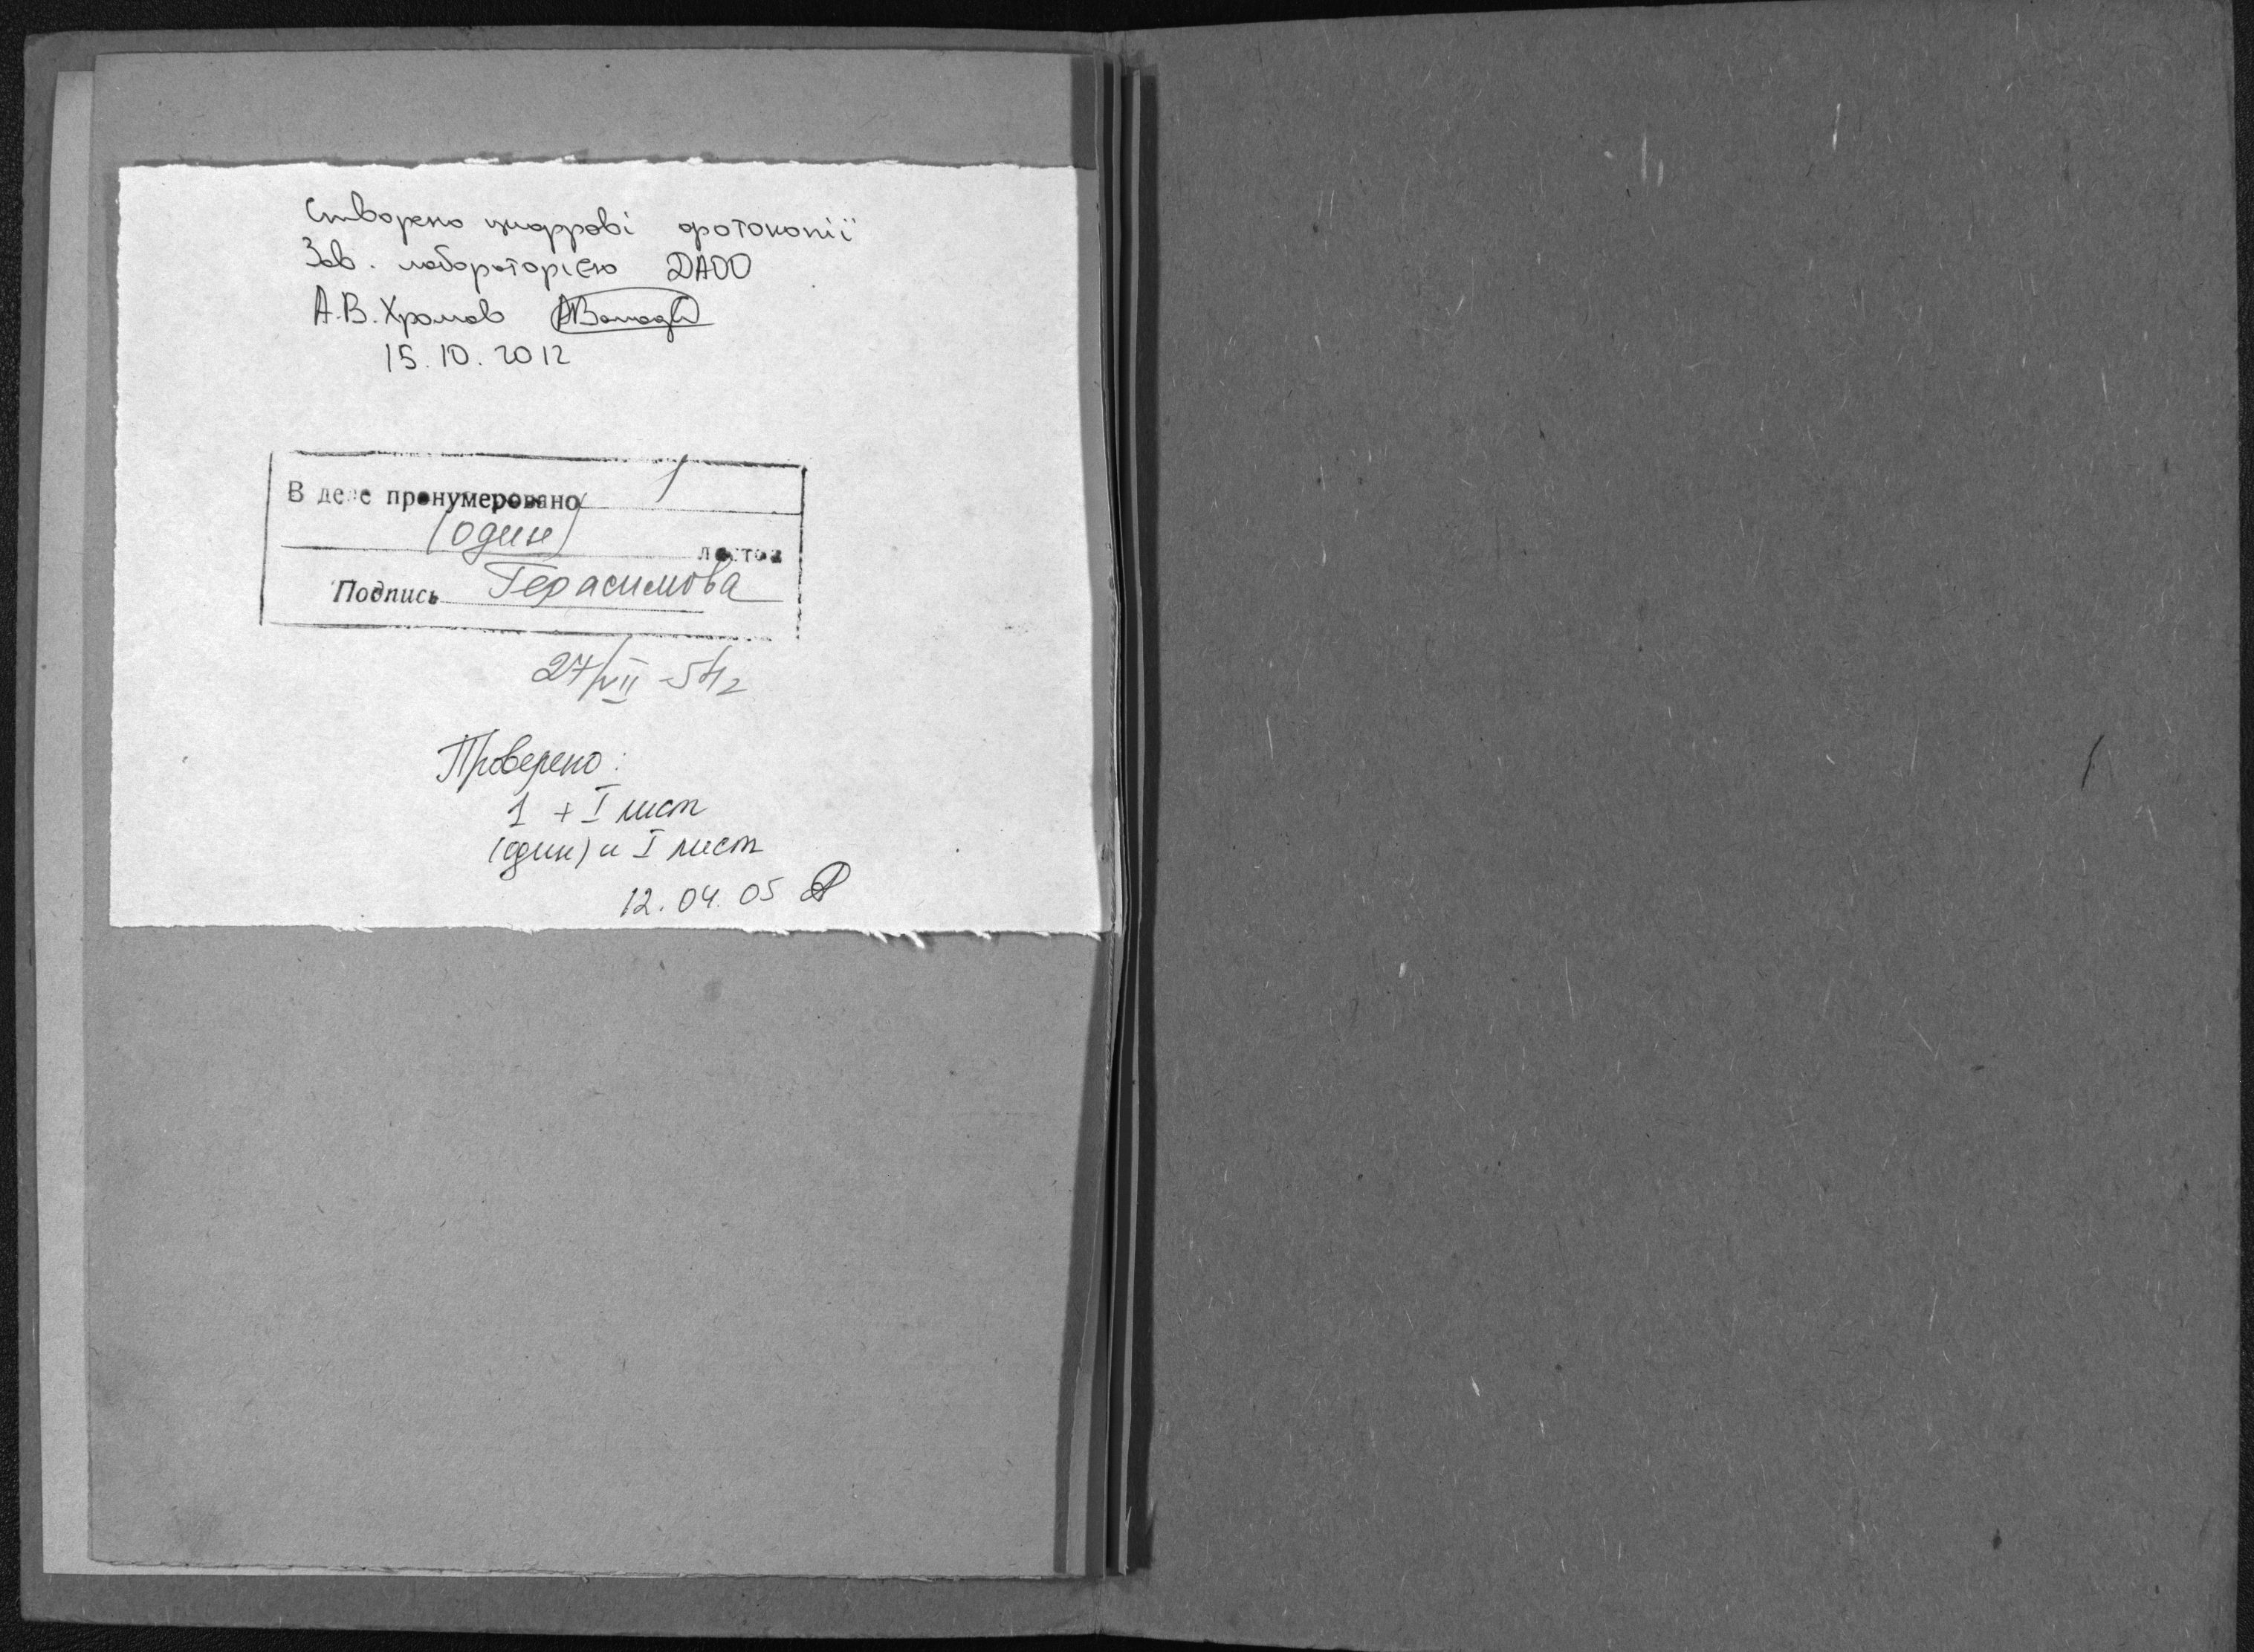 Створено цифрові фотокопії
Зав. лабораторією ДАОО
А.В. Хромов
15.10.2012
В деле пронумеровано 1
(один)
листов
Подпись Герасимова
27/VII -54г
Проверено:
1 + I лист
(один) и I лист
12.04.05